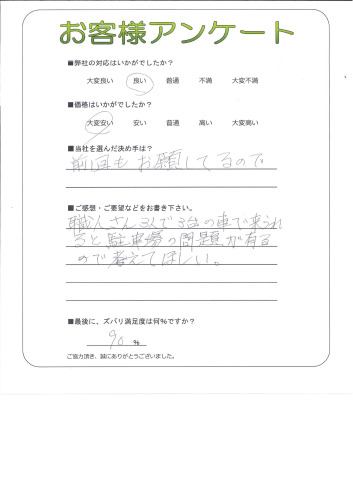 お客様アンケート
■弊社の対応はいかがでしたか？
大変良い 良い 普通 不満 大変不満
■価格はいかがでしたか？
大変安い 安い 普通 高い 大変高い
■当社を選んだ決め手は？
前回もお願してるので
■ご感想・ご要望などをお書き下さい。
職人さん3人で3台の車で来られ
ると駐車場の問題が有る
ので考えてほしい。
■最後に、ズバリ満足度は何％ですか？
90 ％
ご協力頂き、誠にありがとうございました。